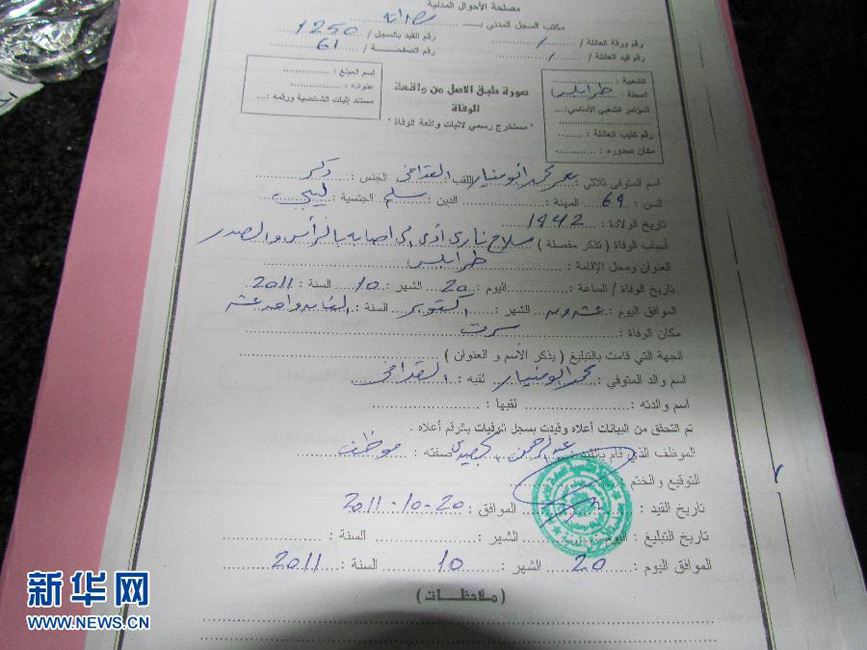 مصلحة الأحوال المدنية
مكتب السجل المدني بـ
رقم ورقة العائلة / ............ / رقم القيد بالسجل / 1250
رقم قيد العائلة / ............ / رقم الصفحة / 61
الشعبية :
المحلة : طرابلس
المؤتمر الشعبي الأساسي:...
رقم كتيب العائلة :
مكان صدوره :
صورة طبق الاصل من واقعة
الوفاة
" مستخرج رسمي لاثبات واقعة الوفاة "
اسم المبلغ :
عنوانه :
مستند إثبات الشخصية ورقمه :...
اسم المتوفي ثلاثي : معمر محمد ابومنيار اللقب : القذافي الجنس : ذكر
السن : 69 المهنة : ............ الدين : مسلم الجنسية : ليبي
تاريخ الولادة : 1942
أسباب الوفاة ( تذكر مفصلة ) سلاح ناري أدى الى اصابه بالرأس والصدر
العنوان ومحل الإقامة : طرابلس
تاريخ الوفاة / الساعة : ............ اليوم : 20 الشهر : 10 السنة : 2011
الموافق اليوم : عشرون الشهر : اكتوبر السنة :
مكان الوفاة : سرت
الجهة التي قامت بالتبليغ ( يذكر الأسم و العنوان )
اسم والد المتوفي : محمد ابومنيار لقبه : القذافي
اسم والدته : ............ لقبها :
تم التحقق من البيانات أعلاه وقيدت بسجل الوفيات بالرقم أعلاه.
الموظف الذي قام بالقيد : عبدالرحمن صفته : موظف
التوقيع والختم
تاريخ القيد : ............ الموافق : 20-10-2011
تاريخ التبليغ : اليوم : ............ الشهر : ............ السنة :
الموافق اليوم : 20 الشهر : 10 السنة : 2011
( ملاحظات )
新华网
WWW.NEWS.CN